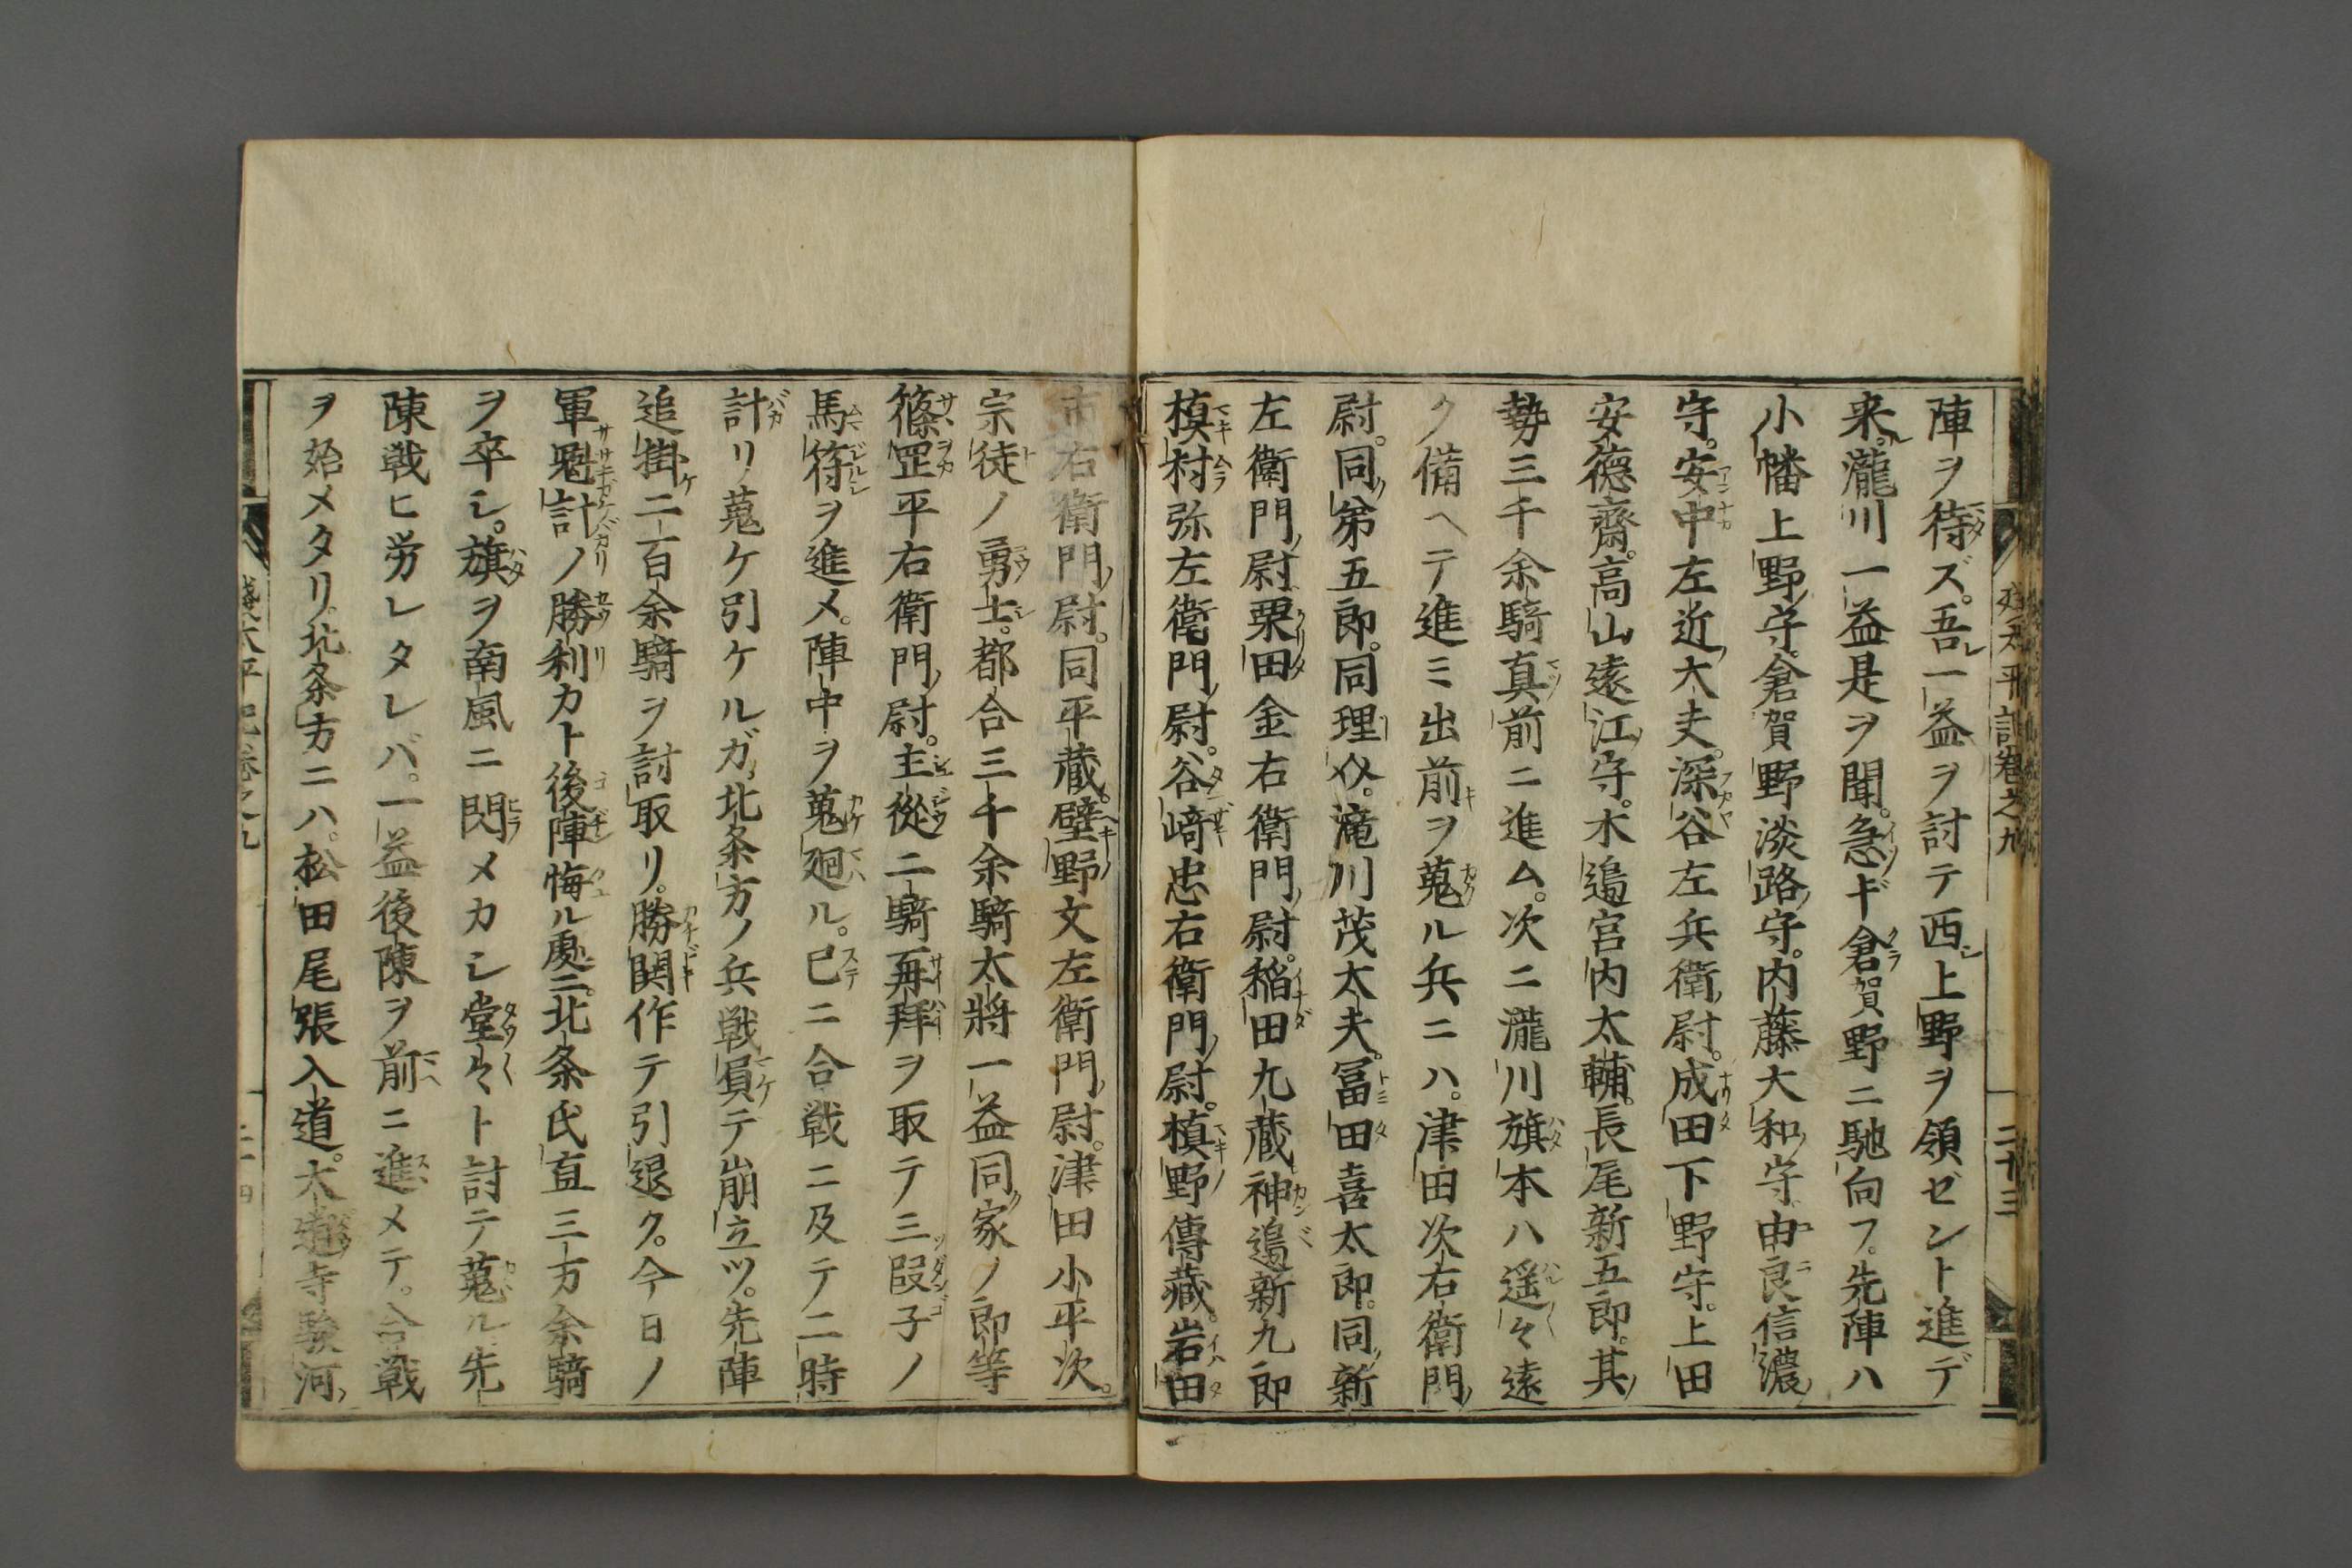 陣ヲ待ズ。吾一益ヲ討テ西上野ヲ領ゼント進デ
来。瀧川一益是ヲ聞。急ギ倉賀野ニ馳向フ。先陣ハ
小幡上野守。倉賀野淡路守。内藤大和守由良信濃
守。安中左近大夫。深谷左兵衛尉。成田下野守。上田
安德齋。高山遠江守。木造宮内太輔。長尾新五郎。其
勢三千余騎真前ニ進ム。次ニ瀧川旗本ハ遥々遠
ク備ヘテ進ミ出前ヲ蒐ル兵ニハ。津田次右衛門
尉。同弟五郎。同理介。滝川茂太夫。冨田喜太郎。同新
左衛門尉栗田金右衛門尉。稲田九蔵神邉新九郎
槙村弥左衛門尉。谷﨑忠右衛門尉。槙野傳蔵。岩田
市右衛門尉。同平蔵。壁野文左衛門尉。津田小平次。
宗徒ノ勇士。都合三千余騎太將一益同家ノ郎等
篠罡平右衛門尉。主從二騎再拜ヲ取テ三段子ノ
馬符ヲ進メ。陣中ヲ蒐廻ル。已ニ合戦ニ及テ二時
計リ蒐ケ引ケルガ。北条方ノ兵戦負テ崩立ツ。先陣
追掛二百余騎ヲ討取リ。勝閧作テ引退ク。今日ノ
軍魁計ノ勝利カト後陣悔ル處ニ。北条氏直三万余騎
ヲ卒シ。旗ヲ南風ニ閃メカシ堂々ト討テ蒐ル。先
陳戦ヒ労レタレバ。一益後陳ヲ前ニ進メテ。合戦
ヲ始メタリ。北条方ニハ。松田尾張入道。大道寺駿河